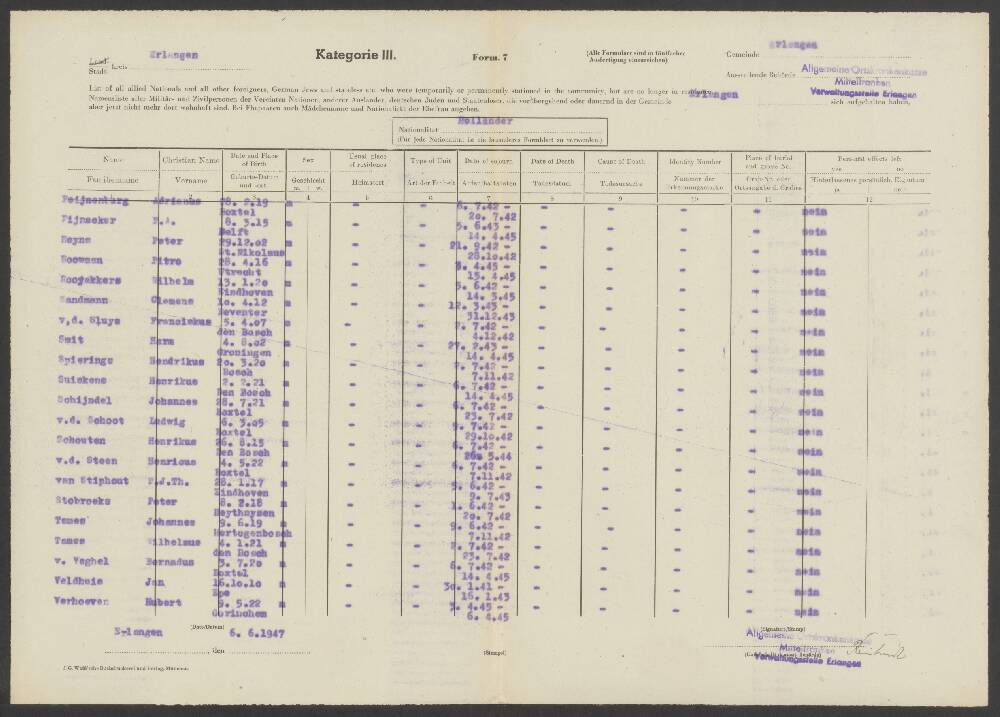 Erlangen
Land-
Stadt- kreis
Kategorie III.
Form. 7
(Alle Formulare sind in fünffacher Ausfertigung einzureichen)
Gemeinde Erlangen
Ausstellende Behörde Allgemeine Ortskrankenkasse
Mittelfranken
Verwaltungsstelle Erlangen
List of all allied Nationals and all other foreigners, German Jews and stateless etc. who were temporarily or permanently stationed in the community, but are no longer in residence.
Namensliste aller Militär- und Zivilpersonen der Vereinten Nationen, anderer Ausländer, deutschen Juden und Staatenloser, die vorübergehend oder dauernd in der Gemeinde Erlangen sich aufgehalten haben,
aber jetzt nicht mehr dort wohnhaft sind. Bei Ehepaaren auch Mädchenname und Nationalität der Ehefrau angeben.
Nationalität Holländer
(Für jede Nationalität ist ein besonderes Formblatt zu verwenden.)
Name Christian Name Date and Place of Birth Sex Usual place of residence Type of Unit Date of sojourn Date of Death Cause of Death Identity Number Place of burial and grave No. Personal effects left yes no
Familienname Vorname Geburts-Datum und -ort Geschlecht m. w. Heimatort Art der Einheit Aufenthaltsdaten Todesdatum Todesursache Nummer der Erkennungsmarke Grab-Nr. oder Ortsangabe d. Grabes Hinterlassenes persönlich. Eigentum ja nein
3 4 5 6 7 8 9 10 11 12
Peijnenburg Adrianus 28. 2.19 m - - 6. 7.42 - - - - - nein
Boxtel 20. 7.42
Pijnacker P.A. 8. 3.15 m - - 5. 6.43 - - - - - nein
Delft 14. 4.45
Reyns Peter 29.12.02 m - - 21. 9.42 - - - - - nein
St.Nikolaas 28.10.42
Rooman Pitro 28. 4.16 m - - 4.45 - - - - - nein
Utrecht 15. 4.45
Rooyakkers Wilhelm 13. 1.20 m - - 5. 6.42 - - - - - nein
Eindhoven 14. 3.45
Sandmann Clemens 10. 4.12 m - - 12. 3.43 - - - - - nein
Deventer 31.12.43
v,d. Sluys Franciskus 5. 4.07 m - - 7.42 - - - - - nein
den Bosch 4.12.42
Smit Harm 4. 8.02 m - - 27. 2.43 - - - - - nein
Groningen 14. 4.45
Spierings Hendrikus 20. 3.20 m - - 7.42 - - - - - nein
Bosch 7.11.42
Suickens Henrikus 2. 2.21 m - - 6. 7.42 - - - - - nein
Den Bosch 14. 4.45
Schijndel Johannes 28. 7.21 m - - 6. 7.42 - - - - - nein
Boxtel 23. 7.42
v.d. Schoot Ludwig 6. 3.05 m - - 7.42 - - - - - nein
Boxtel 29.10.42
Schouten Henrikus 26. 8.15 m - - 6. 7.42 - - - - - nein
Den Bosch 5.44
v.d. Steen Henricus 4. 5.22 m - - 6. 7.42 - - - - - nein
Boxtel 7.11.42
van Stiphout P.J.Th. 28. 1.17 m - - 5. 6.42 - - - - - nein
Eindhoven 9. 7.43
Stobroeks Peter 8. 2.18 m - - 1. 6.42 - - - - - nein
Heythuysen 20. 7.42
Temes Johannes 9. 6.19 m - - 9. 6.42 - - - - - nein
Hertogenbosch 7.11.42
Tames Wilhelmus 4. 1.21 m - - 7.42 - - - - - nein
den Bosch 23. 7.42
v. Veghel Bernadus 3. 7.20 m - - 6. 7.42 - - - - - nein
Boxtel 14. 4.45
Veldhuis Jan 16.10.10 m - - 30. 1.41 - - - - - nein
Epe 16. 1.43
Verhoeven Hubert 9. 5.22 m - - 3. 4.45 - - - - - nein
Gorinchem 6. 4.45
Erlangen (Date/Datum) 6. 6.1947
, den
(Stempel)
(Signature/Stamp)
Allgemeine Ortskrankenkasse
Mittelfranken
Verwaltungsstelle Erlangen